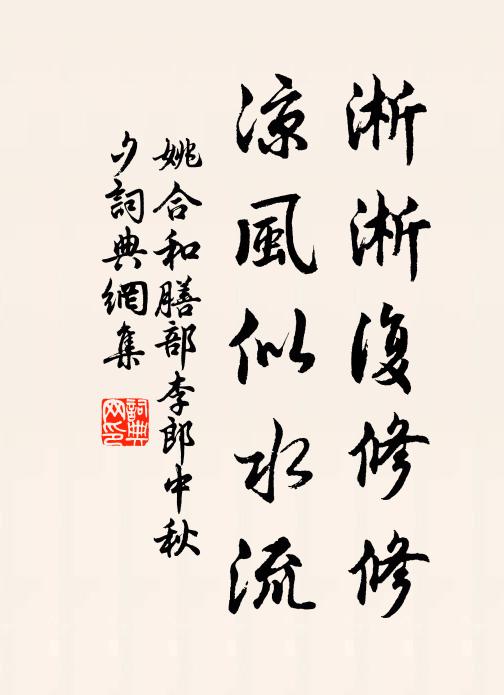 淅淅復修修
涼風似水流
姚合和膳部李郎中秋
夕詞典網集
詞典
网印